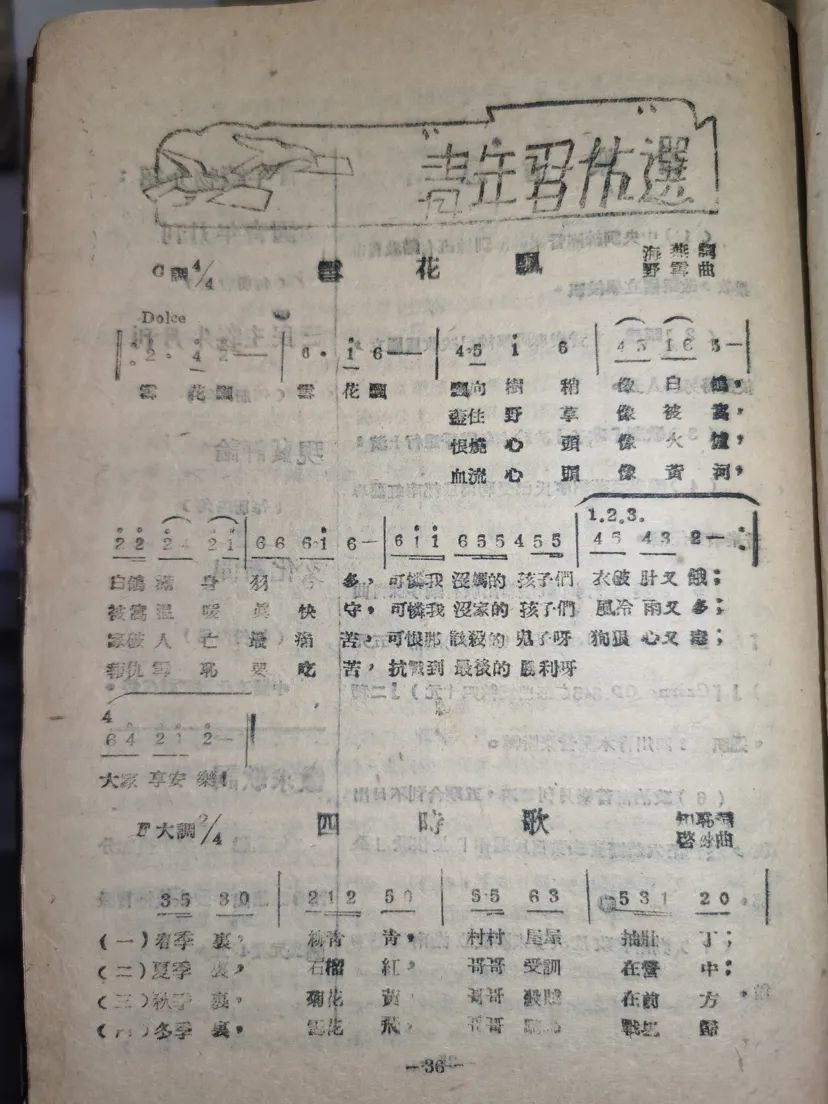 青年習作選
C調4/4 雪花飄 海燕詞
野雪曲
Dolce
2· 4 2—— 6· 1 6—— 45 1 6 45 16 5—
雪 花飄 雪 花飄 飄向樹梢像白鵝，
蓋住野草像被窩，
恨燒心頭像火爐，
血流心頭像黃河，
1.2.3.
22 24 21 66 6·1 6— 611 655 455 45 43 2—
白鵝滿身羽 多，可憐我 沒媽的 孩子們 衣破肚又餓；
被窩溫暖真快 ，可憐我 沒家的 孩子們 風冷雨又多；
家破人亡最痛苦，可恨那 的 鬼子呀 狗狠心又毒；
報仇雪恥要吃苦，抗戰到 最後的 勝利呀
4
64 21 2—
大家 享安樂！
F大調2/4 四時歌 詞
曲
35 30 212 50 55 63 531 20
（一）春季裏， 柳青青， 村村 屋屋 抽壯丁；
（二）夏季裏， 石榴紅， 哥哥 受訓 在營中；
（三）秋季裏， 菊花黃， 哥哥 殺賊 在前方
（ ）冬季裏， 雪花飛， 哥哥 戰 歸
—36—